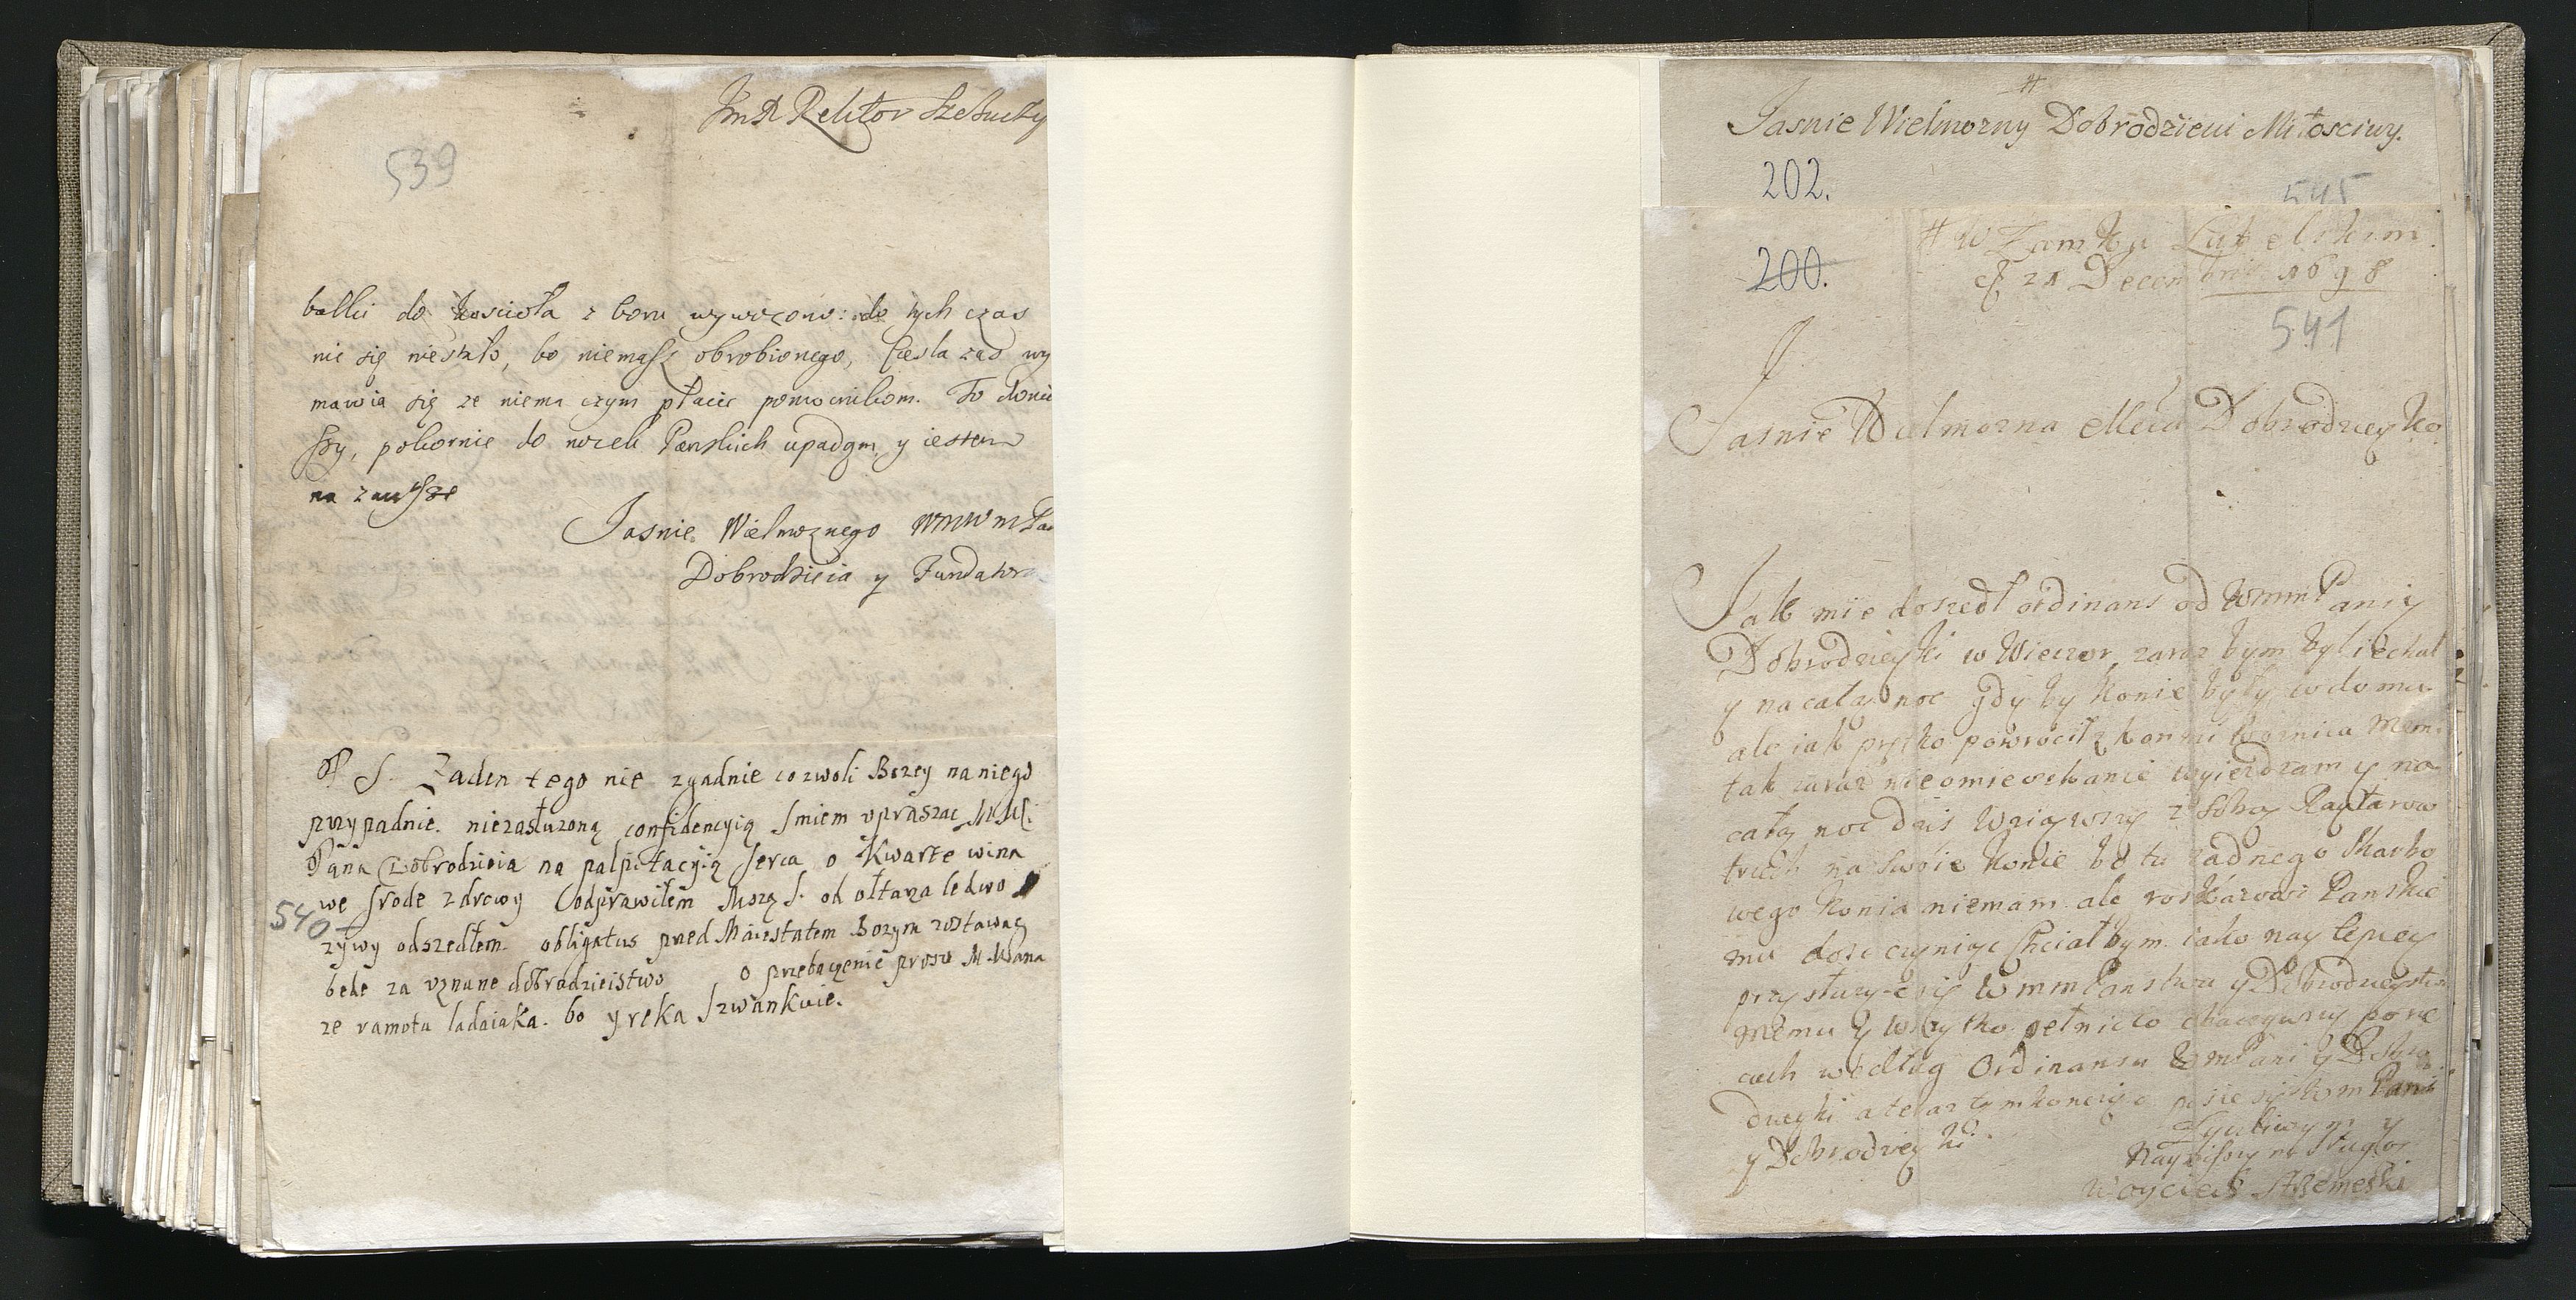 JmX Rektor
539
belki do koscioła z boru wywozono: do tych czas
nic się niestało, bo niemasz obrobionego, Ciesla zas wy
mawia się ze niema czym płacic pomocnikom. To doniu
szy, pokornie do nozek Panskich upadam, y iestem
na zawsze
Jasnie Wielmoznego WMWmPa
Dobrodzieia y Fundatora
P S. Zaden tego nie zgadnie co zwoli Bozey na niego
przypadnie. niezasłuzoną confidencyią smiem upraszac
Pana Dobrodzieia na palpitacyią serca o Kwarte wina
we srode zdrowy odprawiłem Mszą S. od ołtarza ledwo
540
zywy odszedłem obligatus pred Maiestatem Bozym zostawac
bede za uznane dobrodzieistwo o przebaczenie prosze M Pana
ze ramota ladaiaka. bo y reka szwankuie.
#
Jasnie Wielmozny Dobrodzieiu Miłosciwy.
202.
545
# w Zamku Lubelskim
200.
d 21 Decembris 1698
541
J
Jasnie Wielmozna Mcia Dobrodzieyko
Jak mie doszedł ordinans od WmmPaniey
Dobrodzieyki w Wieczor zaraz bym był iechał
y na całą noc gdy by konie były w domu
ale iak prętko powrocił z konmi woznica
tak zaraz nieomieszkanie wyiezdzam y na
całą noc dzis wziąwszy z sobą Raytarow
trzech na swoie konie bo tu zadnego skarbo
wego konia niemam ale roskazowi Panskie
mu dosc czyniąc chciałbym iako naylepiey
przysłuzyc się WmmPanstwu y Dobrodzieystwu
memu y wszytko pełnic to
według Ordinansu WmPani y Dobro
dzieyki a teraz tym koncząc WmPani
y Dobrodzieyki
Zyczliwym y
Nayniszym Sługą
Woyciech